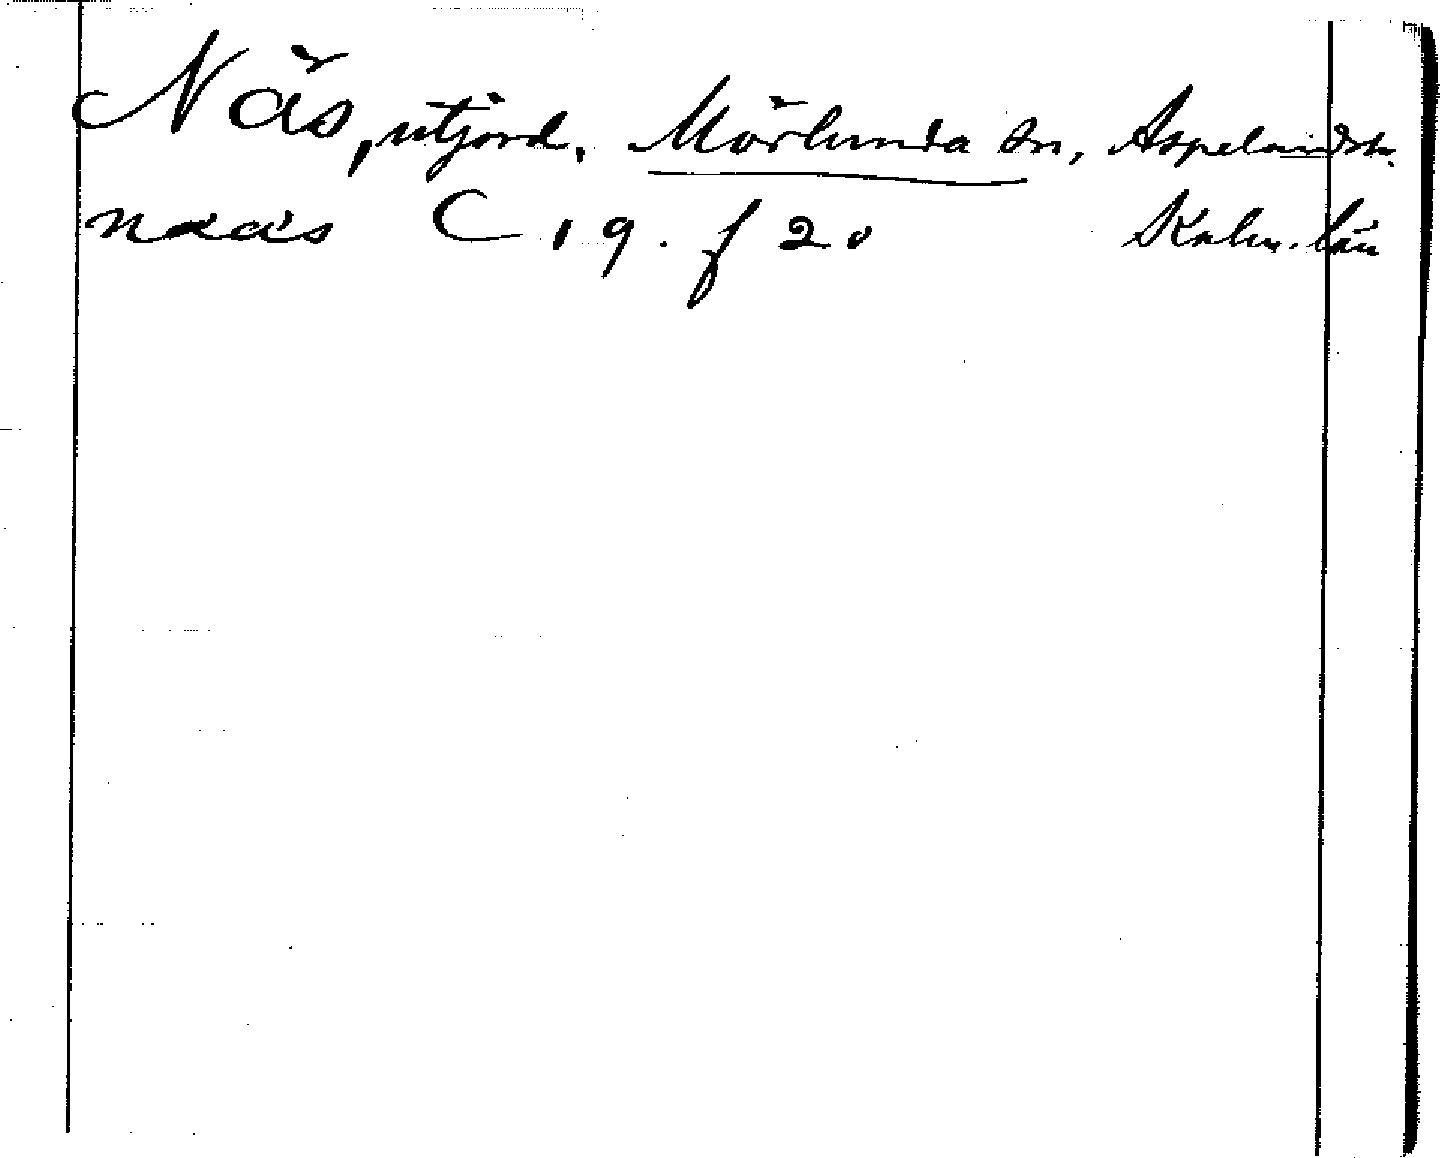 Näs, utjord, Mörlunda sn, Aspelands h.
naas C 19. f 20 Kalm. län